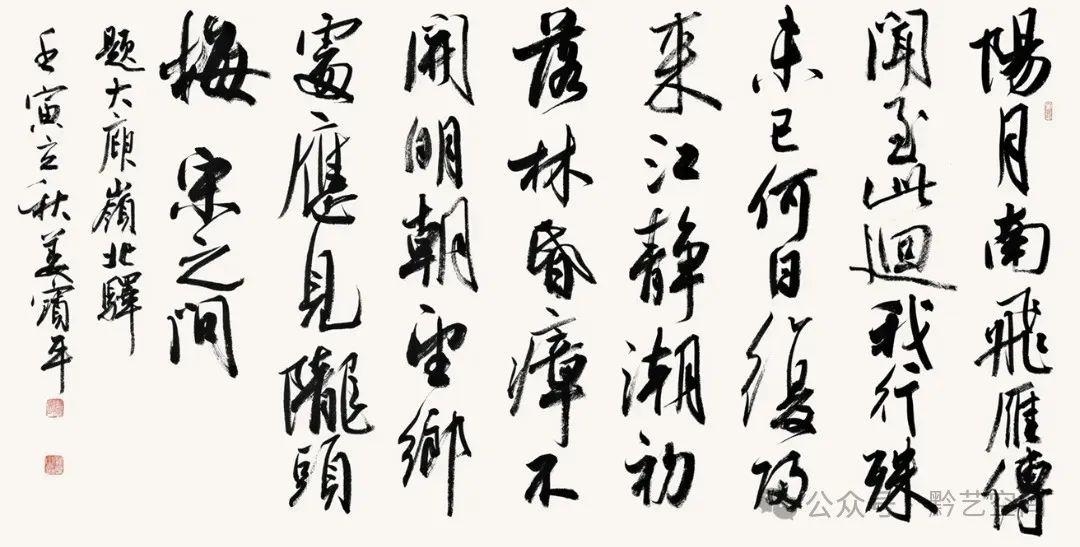 陽月南飛雁傳
聞至此迴我行殊
未已何日復歸
来江静潮初
落林昏瘴不
開明朝望鄉
處應見隴頭
梅 宋之问
题大庾嶺北驛
壬寅立秋姜寶平
公众号·黔艺空间